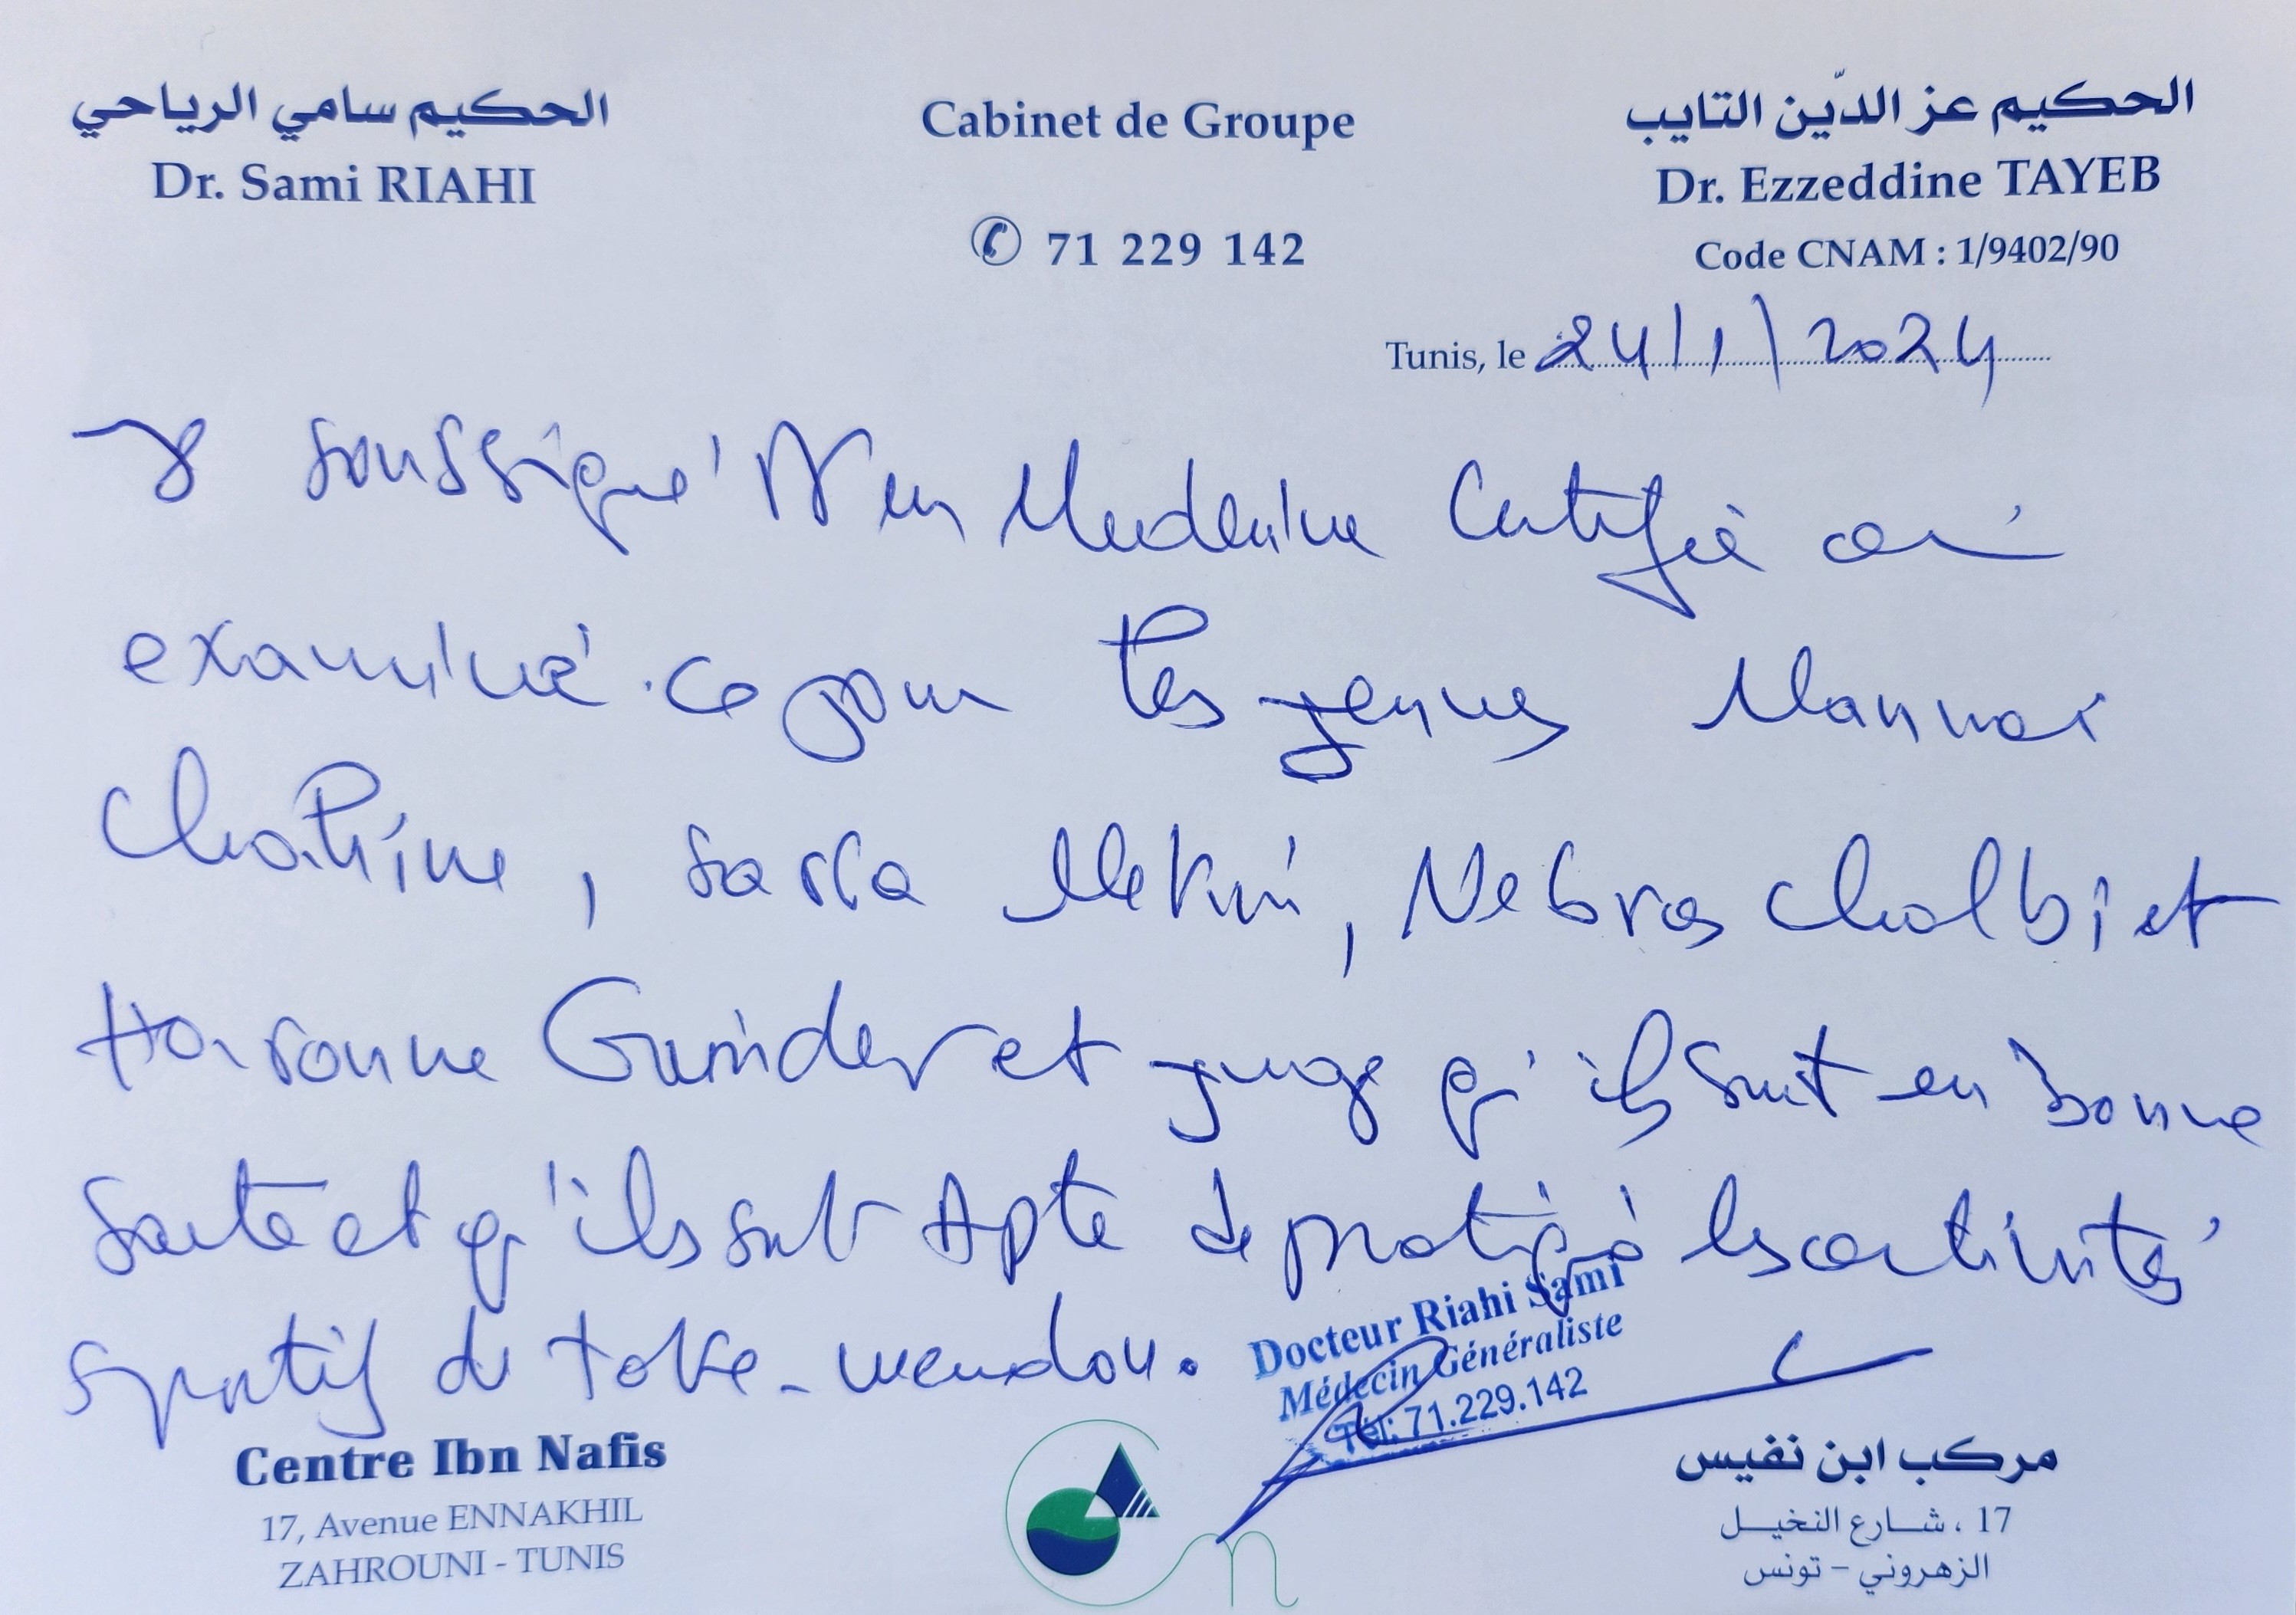 الحكيم سامي الرياحي
Dr. Sami RIAHI
Cabinet de Groupe
✆ 71 229 142
الحكيم عز الدّين التايب
Dr. Ezzeddine TAYEB
Code CNAM : 1/9402/90
Tunis, le 24/1/2024
soussigné Dr en Medecine Certifié
examiné ce jour les jeunes Mannar
Chatrine, sarra Mekni, Nebras Chalbi et
Haroune et juge qu'ils sont en bonne
sante et qu'ils sont Apte de pratiqué les activités
sportif de
Docteur Riahi Sami
Médecin Généraliste
Tél: 71.229.142
Centre Ibn Nafis
17, Avenue ENNAKHIL
ZAHROUNI - TUNIS
مركب ابن نفيس
17 ، شارع النخيل
الزهروني - تونس